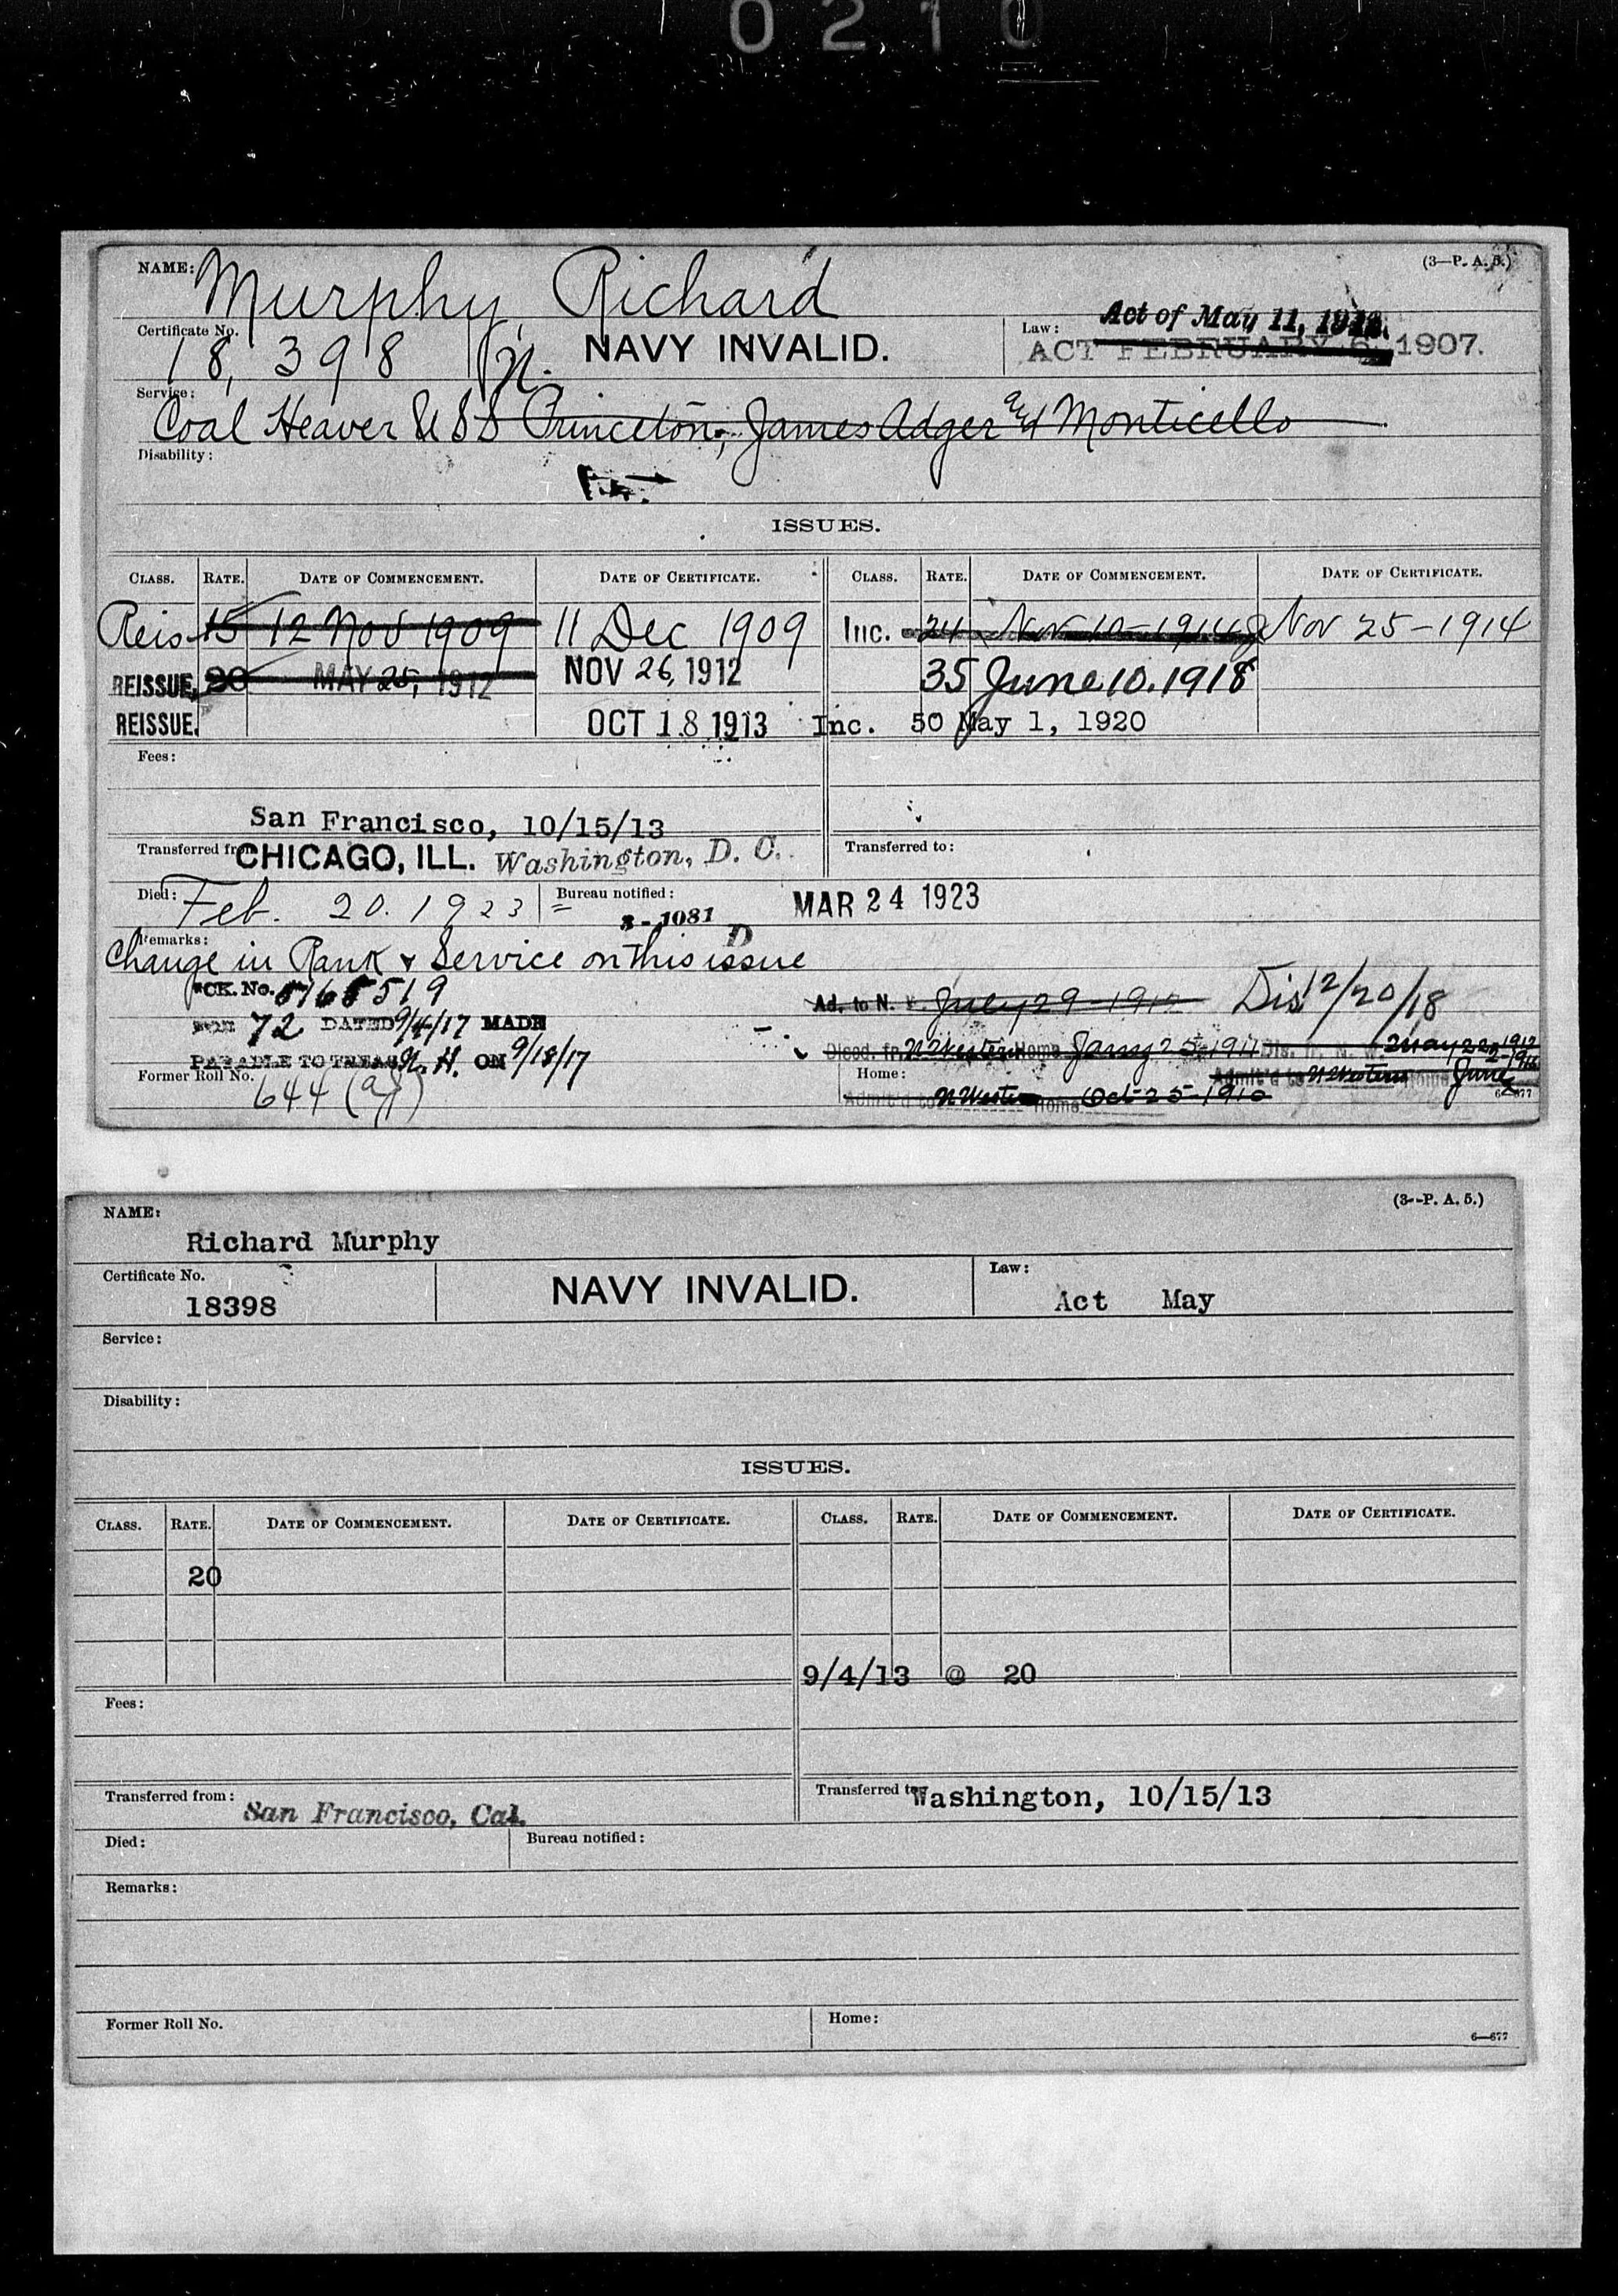 0210
NAME: Murphy, Richard (3—P. A. 5.)
Certificate No. 18,398 n. NAVY INVALID. Law: Act of May 11, 1912.
ACT FEBRUARY 6, 1907.
Service: Coal Heaver U S S Princeton, James Adger and Monticello
Disability:
ISSUES.
CLASS. RATE. DATE OF COMMENCEMENT. DATE OF CERTIFICATE. CLASS. RATE. DATE OF COMMENCEMENT. DATE OF CERTIFICATE.
Reis 15 12 Nov 1909 11 Dec 1909 Inc. 24 Nov 10-1914 Nov 25-1914
REISSUE, 20 MAY 25, 1912 NOV 26, 1912 35 June 10. 1918
REISSUE. OCT 18 1913 Inc. 50 May 1, 1920
Fees:
San Francisco, 10/15/13
Transferred from CHICAGO, ILL. Washington, D. C. Transferred to:
Died: Feb. 20. 1923 Bureau notified: MAR 24 1923
3-1081 D
Remarks: Change in Rank & Service on this issue
CK. No. 5765519
72 DATED 9/4/17 MADE Ad. to N. July 29-1912 Dis 12/20/18
PAYABLE TO TREAS N. H. ON 9/18/17 Discd. fr. N Western Home Jany 25, 1911 Dis. fr. N. W. May 22, 1912
Former Roll No. 644 Home: Admit'd to N Western Home June
Admit'd to N Western Home Oct 25-1910 6—677
NAME: (3--P. A. 5.)
Richard Murphy
Certificate No. 18398 NAVY INVALID. Law: Act May
Service:
Disability:
ISSUES.
CLASS. RATE. DATE OF COMMENCEMENT. DATE OF CERTIFICATE. CLASS. RATE. DATE OF COMMENCEMENT. DATE OF CERTIFICATE.
20
9/4/13 @ 20
Fees:
Transferred from: San Francisco, Cal. Transferred to Washington, 10/15/13
Died: Bureau notified:
Remarks:
Former Roll No. Home:
6—677